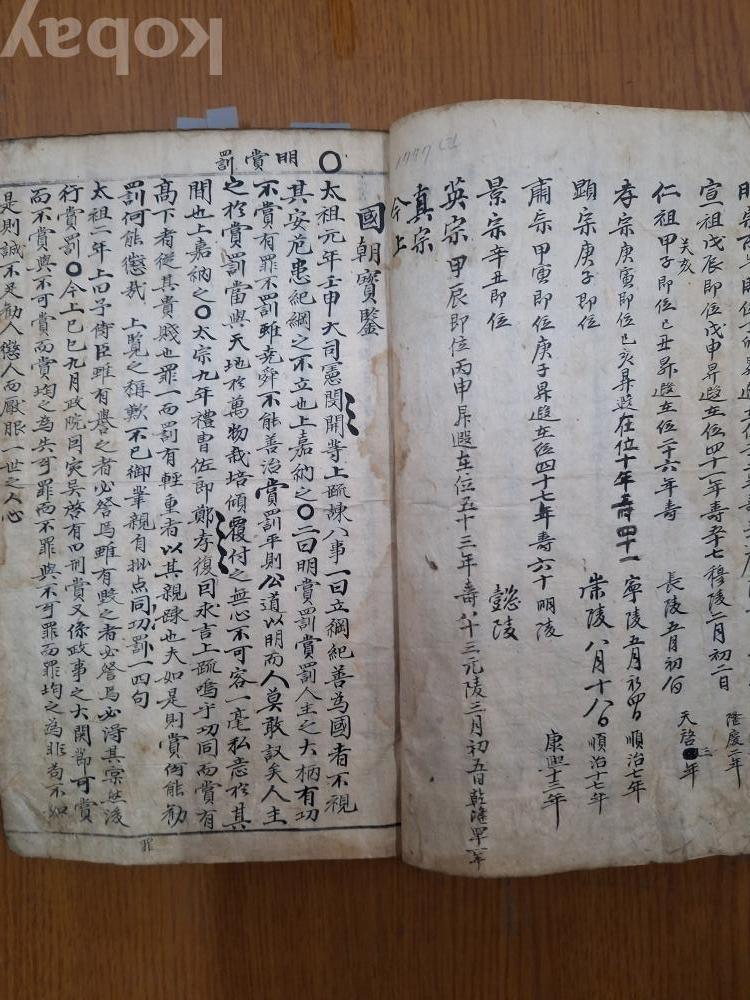 宣祖戊辰即位戊申昇遐在位四十一年壽五十七穆陵二月初二日
隆慶二年
仁祖甲子即位己丑昇遐在位二十六年壽
癸亥
長陵五月初
天啓三年
孝宗庚寅即位己亥昇遐在位十年壽四十一寧陵五月初四日順治七年
顯宗庚子即位
崇陵八月十八日順治十七年
肅宗甲寅即位庚子昇遐在位四十七年壽六十明陵
康熙十三年
景宗辛丑即位
懿陵
英宗甲辰即位丙申昇遐在位五十三年壽八十三元陵三月初五日乾隆
真宗
今上
1777
國朝寶鑒
明賞罰
○太祖元年壬申大司憲閔開等上疏諫八事一曰立綱紀善為國者不視
其安危患紀綱之不立也上嘉納之○二曰明賞罰賞罰人主之大柄有功
不賞有罪不罰雖堯舜不能善治賞罰平則公道以明而人莫敢議矣人主
之於賞罰當與天地於萬物栽培傾覆付之無心不可容一毫私意於其
間也上嘉納之○太宗九年禮曹佐郎鄭孝復因求言上疏嗚乎功同而賞有
高下者從其貴賤也罪一而罰有輕重者以其親踈也夫如是則賞何能勸
罰何能懲哉 上覽之稱歎不已御筆親自批点同功罰一四句
太祖二年上曰予侍臣雖有譽之者必詧焉雖有毀之者必詧焉必得其實然後
行賞罰○今上己巳九月政院因灾異啓有曰刑賞又係政事之大關節可賞
而不賞與不可賞而賞均之為失可罪而不罪與不可罪而罪均之為非苟不如
是則誠不足勸人懲人而厭服一世之人心
罪
kobay